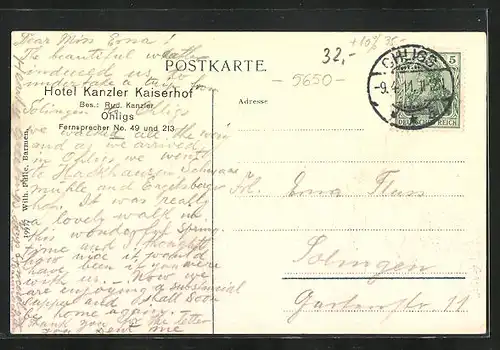 Dear Miss Erna!
The beautiful weather
induced us to
undertake a trip from
Solingen to Ohligs
we walked all the way
and as we arrived
in Ohligs we went
to Hackhausen, Schwanen
mühle and Engelsberger
hof. It was really
a lovely walk in
this wonderful spring
time and I thought
how nice it would
have been if you were
with us. – Now we
are enjoying a substancial
supper and shall soon
be home again.
Thank you for the letter
you sent me
POSTKARTE.
Hotel Kanzler Kaiserhof
Bes.: Rud. Kanzler
Ohligs
Fernsprecher No. 49 und 213
Wilh. Fülle, Barmen.
Adresse
32,-
+10% 35,-
-5650-
OHLIGS
-9.4.11.
5
DEUTSCHES REICH
Frl. Erna Fluss
Solingen
Gartenstr 11